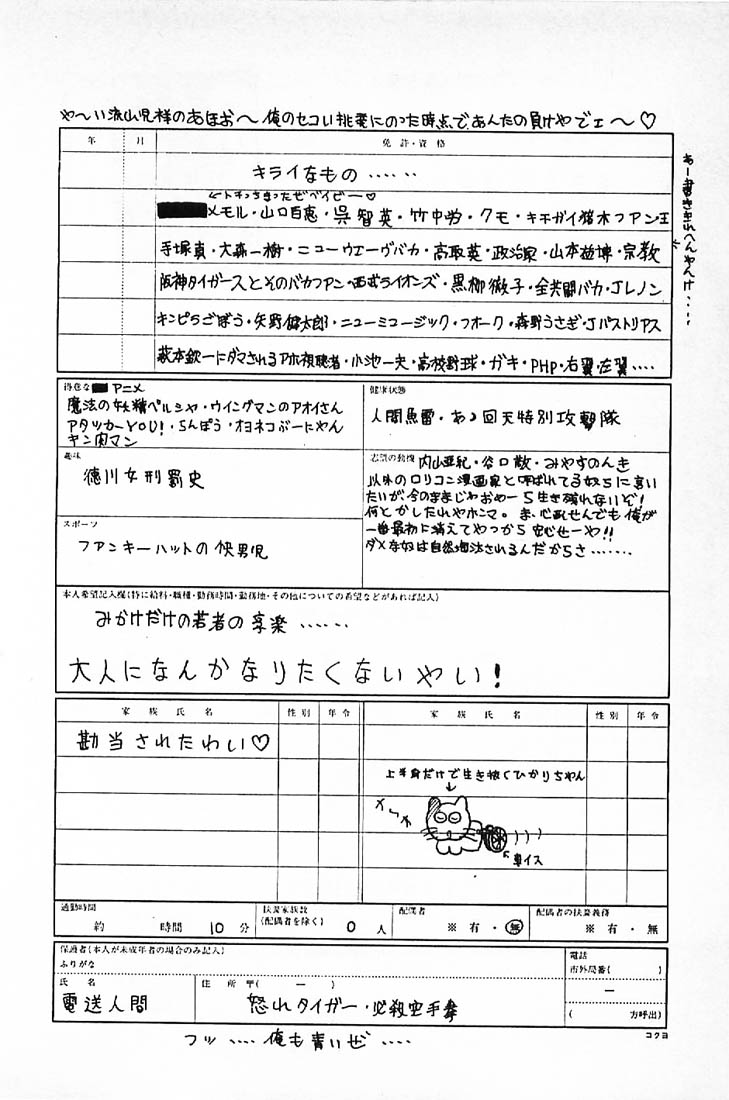 や〜い流山児様のあほお〜俺のセコい挑発にのった時点で、あんたの負けやでェ〜♡
年 月 免許・資格
キライなもの……
メモル・山口百恵・呉智英・竹中労・クモ・キチガイ猪木ファン王
手塚真・大森一樹・ニューウェーヴバカ・高取英・政治家・山本益博・宗教
阪神タイガースとそのバカファン・西武ライオンズ・黒柳徹子・全共闘バカ・Jレノン
キンピラごぼう・矢野健太郎・ニューミュージック・フォーク・森野うさぎ・Jパストリアス
萩本欽一にダマされるアホ視聴者・小池一夫・高校野球・ガキ・PHP・右翼・左翼….
あー書ききれへんやんけ….
得意な アニメ
魔法の妖精ペルシャ・ウイングマンのアオイさん
アタッカーYOU!・らんぽう・オヨネコぶーにゃん
キン肉マン
健康状態
人間魚雷・あゝ回天特別攻撃隊
趣味
徳川女刑罰史
志望の動機 内山亜紀・谷口敬・みやすのんき
以外のロリコン漫画家と呼ばれてる奴らに言い
たいが今のままじゃおめーら生き残れないぞ!
何とかしたれやホンマ。ま、心配せんでも俺が
一番最初に消えてやっから安心せーや!!
ダメな奴は自然淘汰されるんだからさ…….
スポーツ
ファンキーハットの快男児
本人希望記入欄(特に給料・職種・勤務時間・勤務地・その他についての希望などがあれば記入)
みかけだけの若者の享楽……
大人になんかなりたくないやい!
家族氏名 性別 年令 家族氏名 性別 年令
勘当されたわい♡
上半身だけで生き抜くひかりちゃん
車イス
通勤時間
約 時間 10分
扶養家族数
(配偶者を除く) 0人
配偶者
※有・無
配偶者の扶養義務
※有・無
保護者(本人が未成年者の場合のみ記入)
ふりがな
氏名
電送人間
住所 〒( — )
怒れタイガー・必殺空手拳
電話
市外局番( )
—
( 方呼出)
コクヨ
フッ….俺も青いぜ….